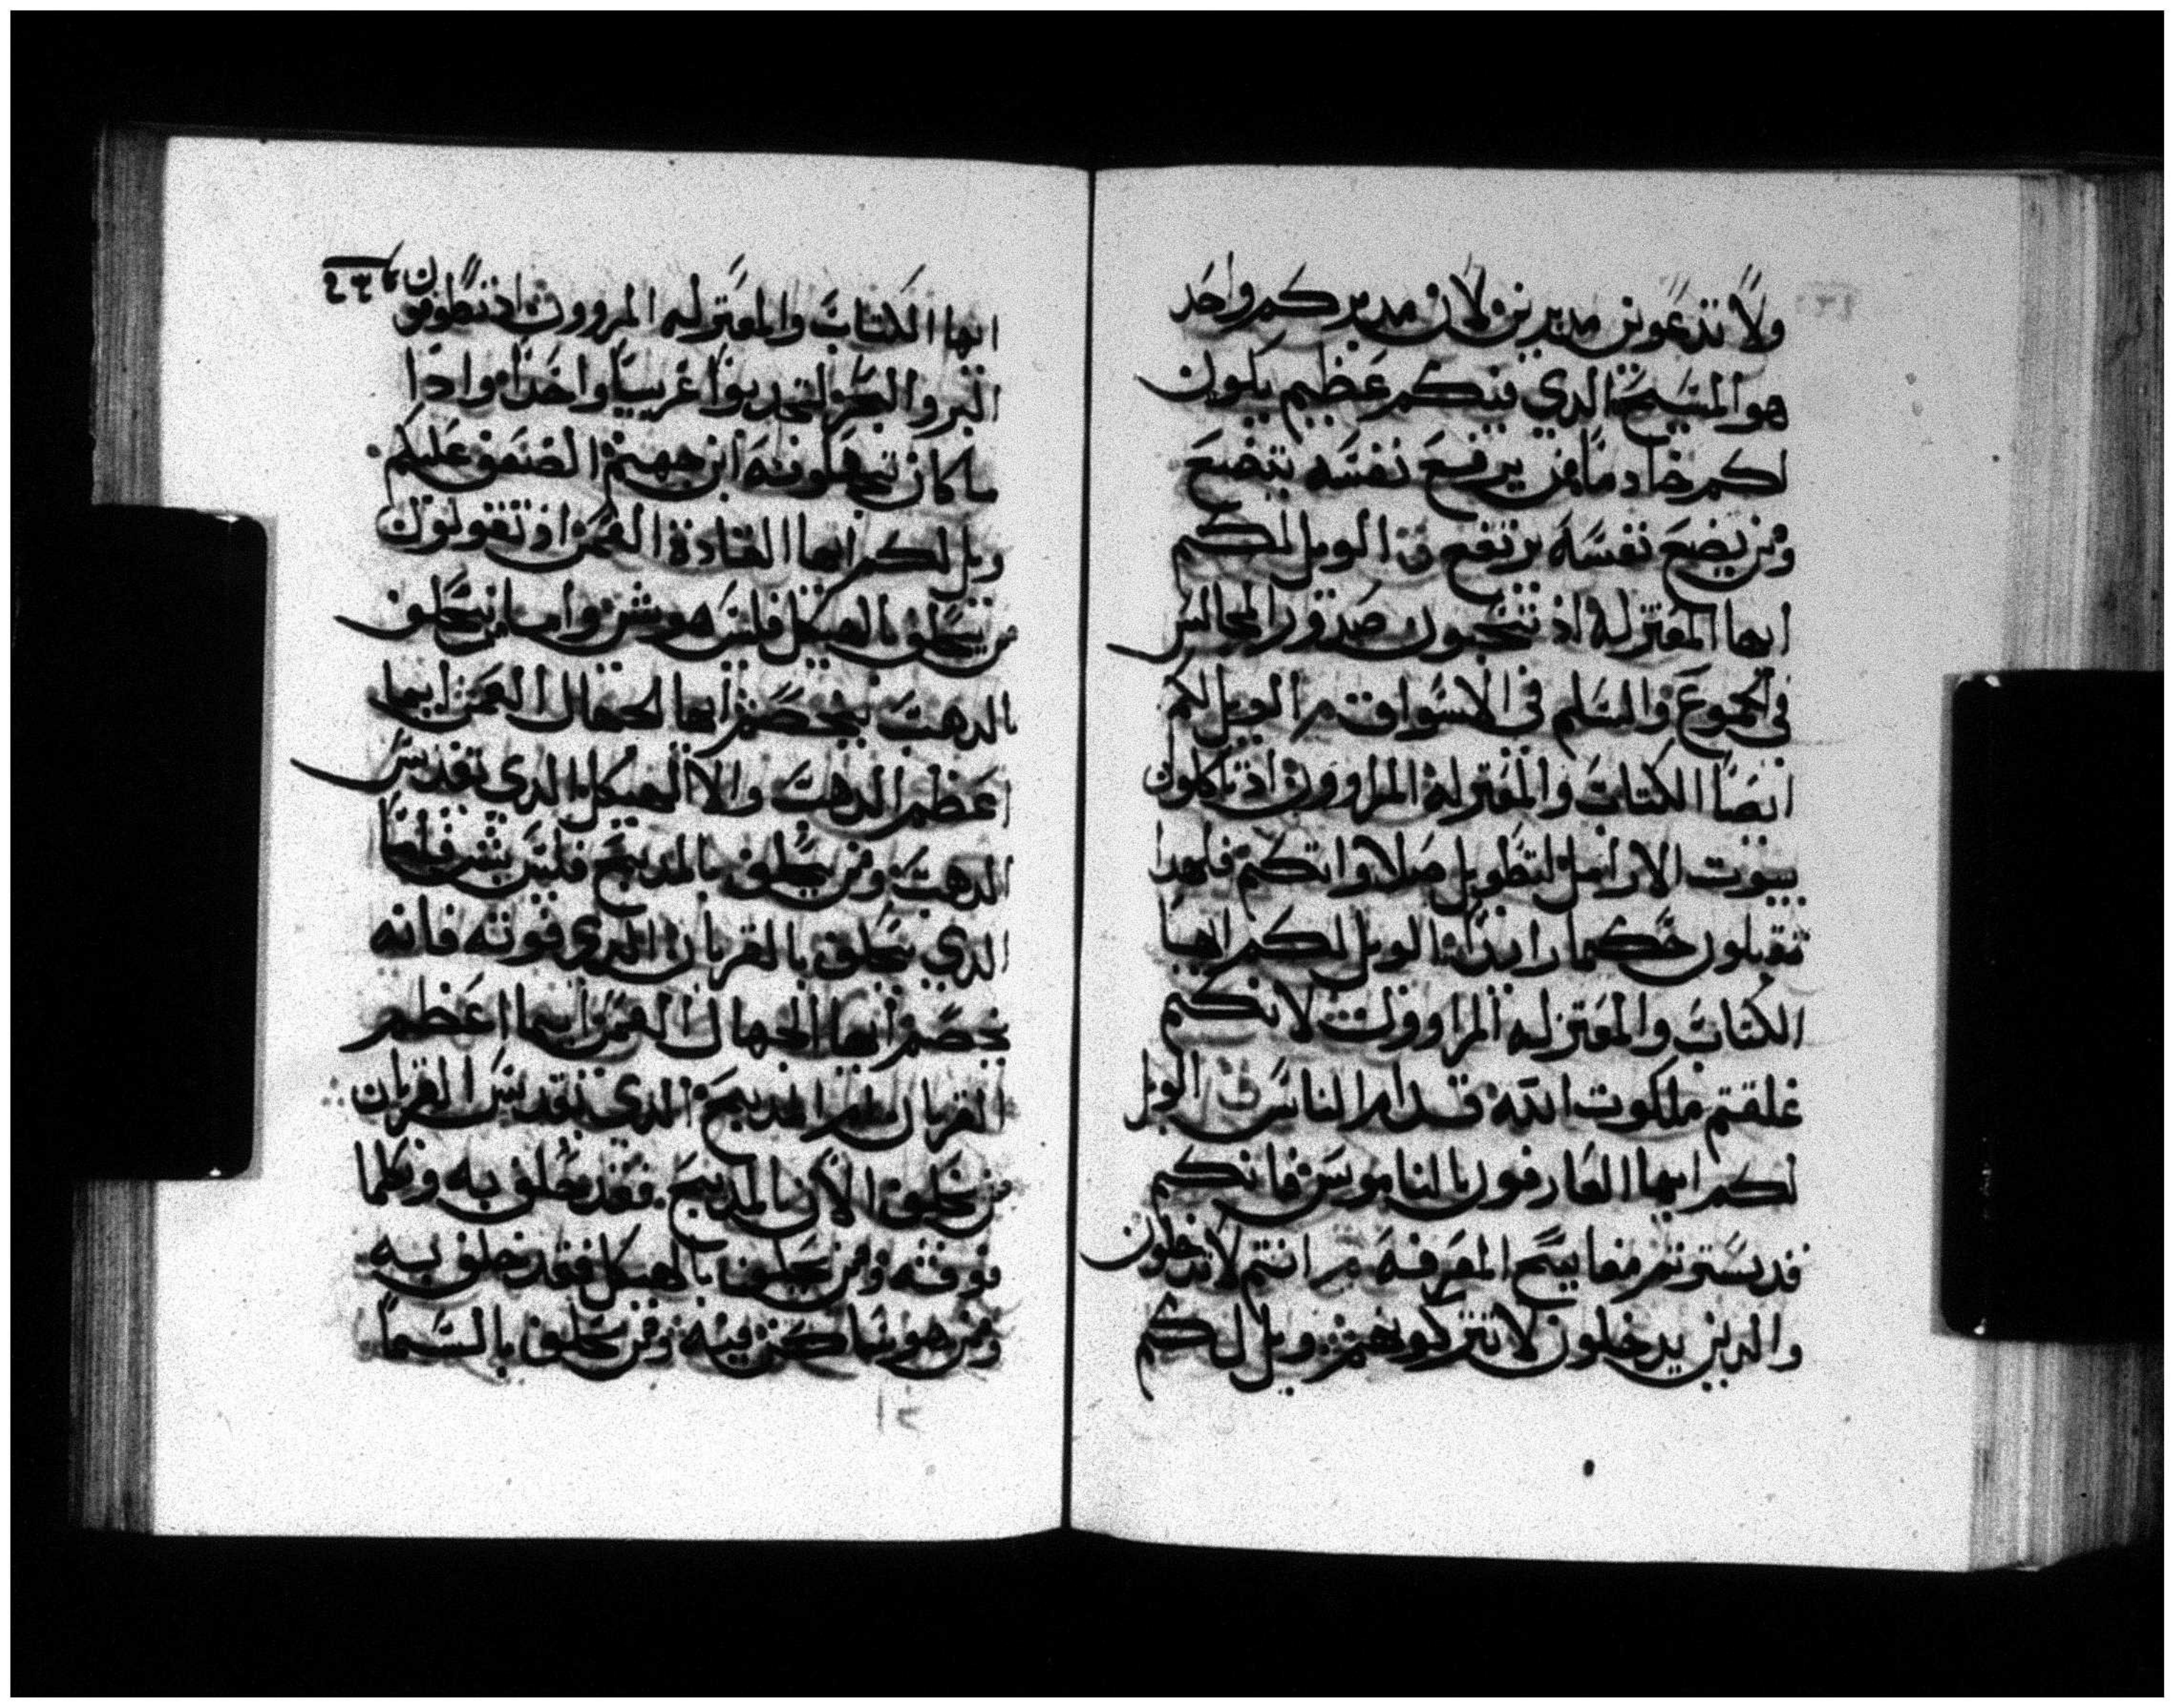 ولا تدعون مدبرين لان مدبركم واحد
هو المسيح الدي فيكم عظيم يكون
لكم خادما من يرفع نفسه يتضع
ومن يضع نفسه يرتفع الويل لكم
ايها المعتزله اد تنتخبون صدور المجالس
في الجموع والسلم في الاسواق الويل لكم
ايضا الكتاب والمعتزله المراوون اد تاكلون
بيوت الارامل لتطويل صلاواتكم فلهدا
تقبلون حكما رايدا الويل لكم ايها
الكتاب والمعتزله المراوون لانكم
غلقتم ملكوت الله قدام الناس الويل
لكم ايها العارفون بالناموس فانكم
قد سترتم مفاتيح المعرفه انتم لا تدخلون
والدين يدخلون لا تتركونهم ويل لكم
ايها الكتاب والمعتزله المروون اد تطوفون
البر والبحر لتجدبوا غريبا واحدا وادا
ما كان تجعلونه ابن جهنم الضعف عليكم
ويل لكم ايها القادة العمي اد تقولون
من يحلف بالهيكل فليس هو بشي واما من يحلف
بالدهب يخصم ايها الجهال العمي ايما
اعظم الدهب والا الهيكل الدي يقدس
الدهب ومن يحلف بالمدبح فليس بشي فاما
الدي يحلف بالقربان الدي فوقه فانه
يخصم ايها الجهال العمي ايما اعظم
القربان ام المدبح الدي يقدس القربان
من يحلف الان بالمدبح فقد حلف به وبكلما
فوقه ومن يحلف بالهيكل فقد حلف به
ومن هو ساكن فيه ومن يحلف بالسما